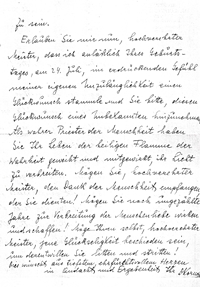 zu sein.
Erlauben Sie mir nun, hochverehrter
Meister, dass ich anlässlich Ihres Geburts-
tages, am 24. Juli, im erdrückenden Gefühl
meiner eigenen Unzulänglichkeit einen
Glückwunsch stammle und Sie bitte, diesen
Glückwunsch eines Unbekannten hinzunehmen.
Als wahrer Priester der Menschheit haben
Sie Ihr Leben der heiligen Flamme der
Wahrheit geweiht und mitgewirkt, ihr Licht
zu verbreiten. Mögen Sie, hochverehrter
Meister, den Dank der Menschheit empfangen
der Sie dienten! Mögen Sie noch ungezählte
Jahre zur Verbreitung der Menschenliebe wirken
und schaffen! Möge Ihnen selbst, hochverehrter
Meister, jene Glückseligkeit beschieden sein,
um derentwillen Sie litten und stritten!
Dies wünscht aus tiefstem, ehrfurchtsvollem Herzen
in Andacht und Ergebenheit Ihr